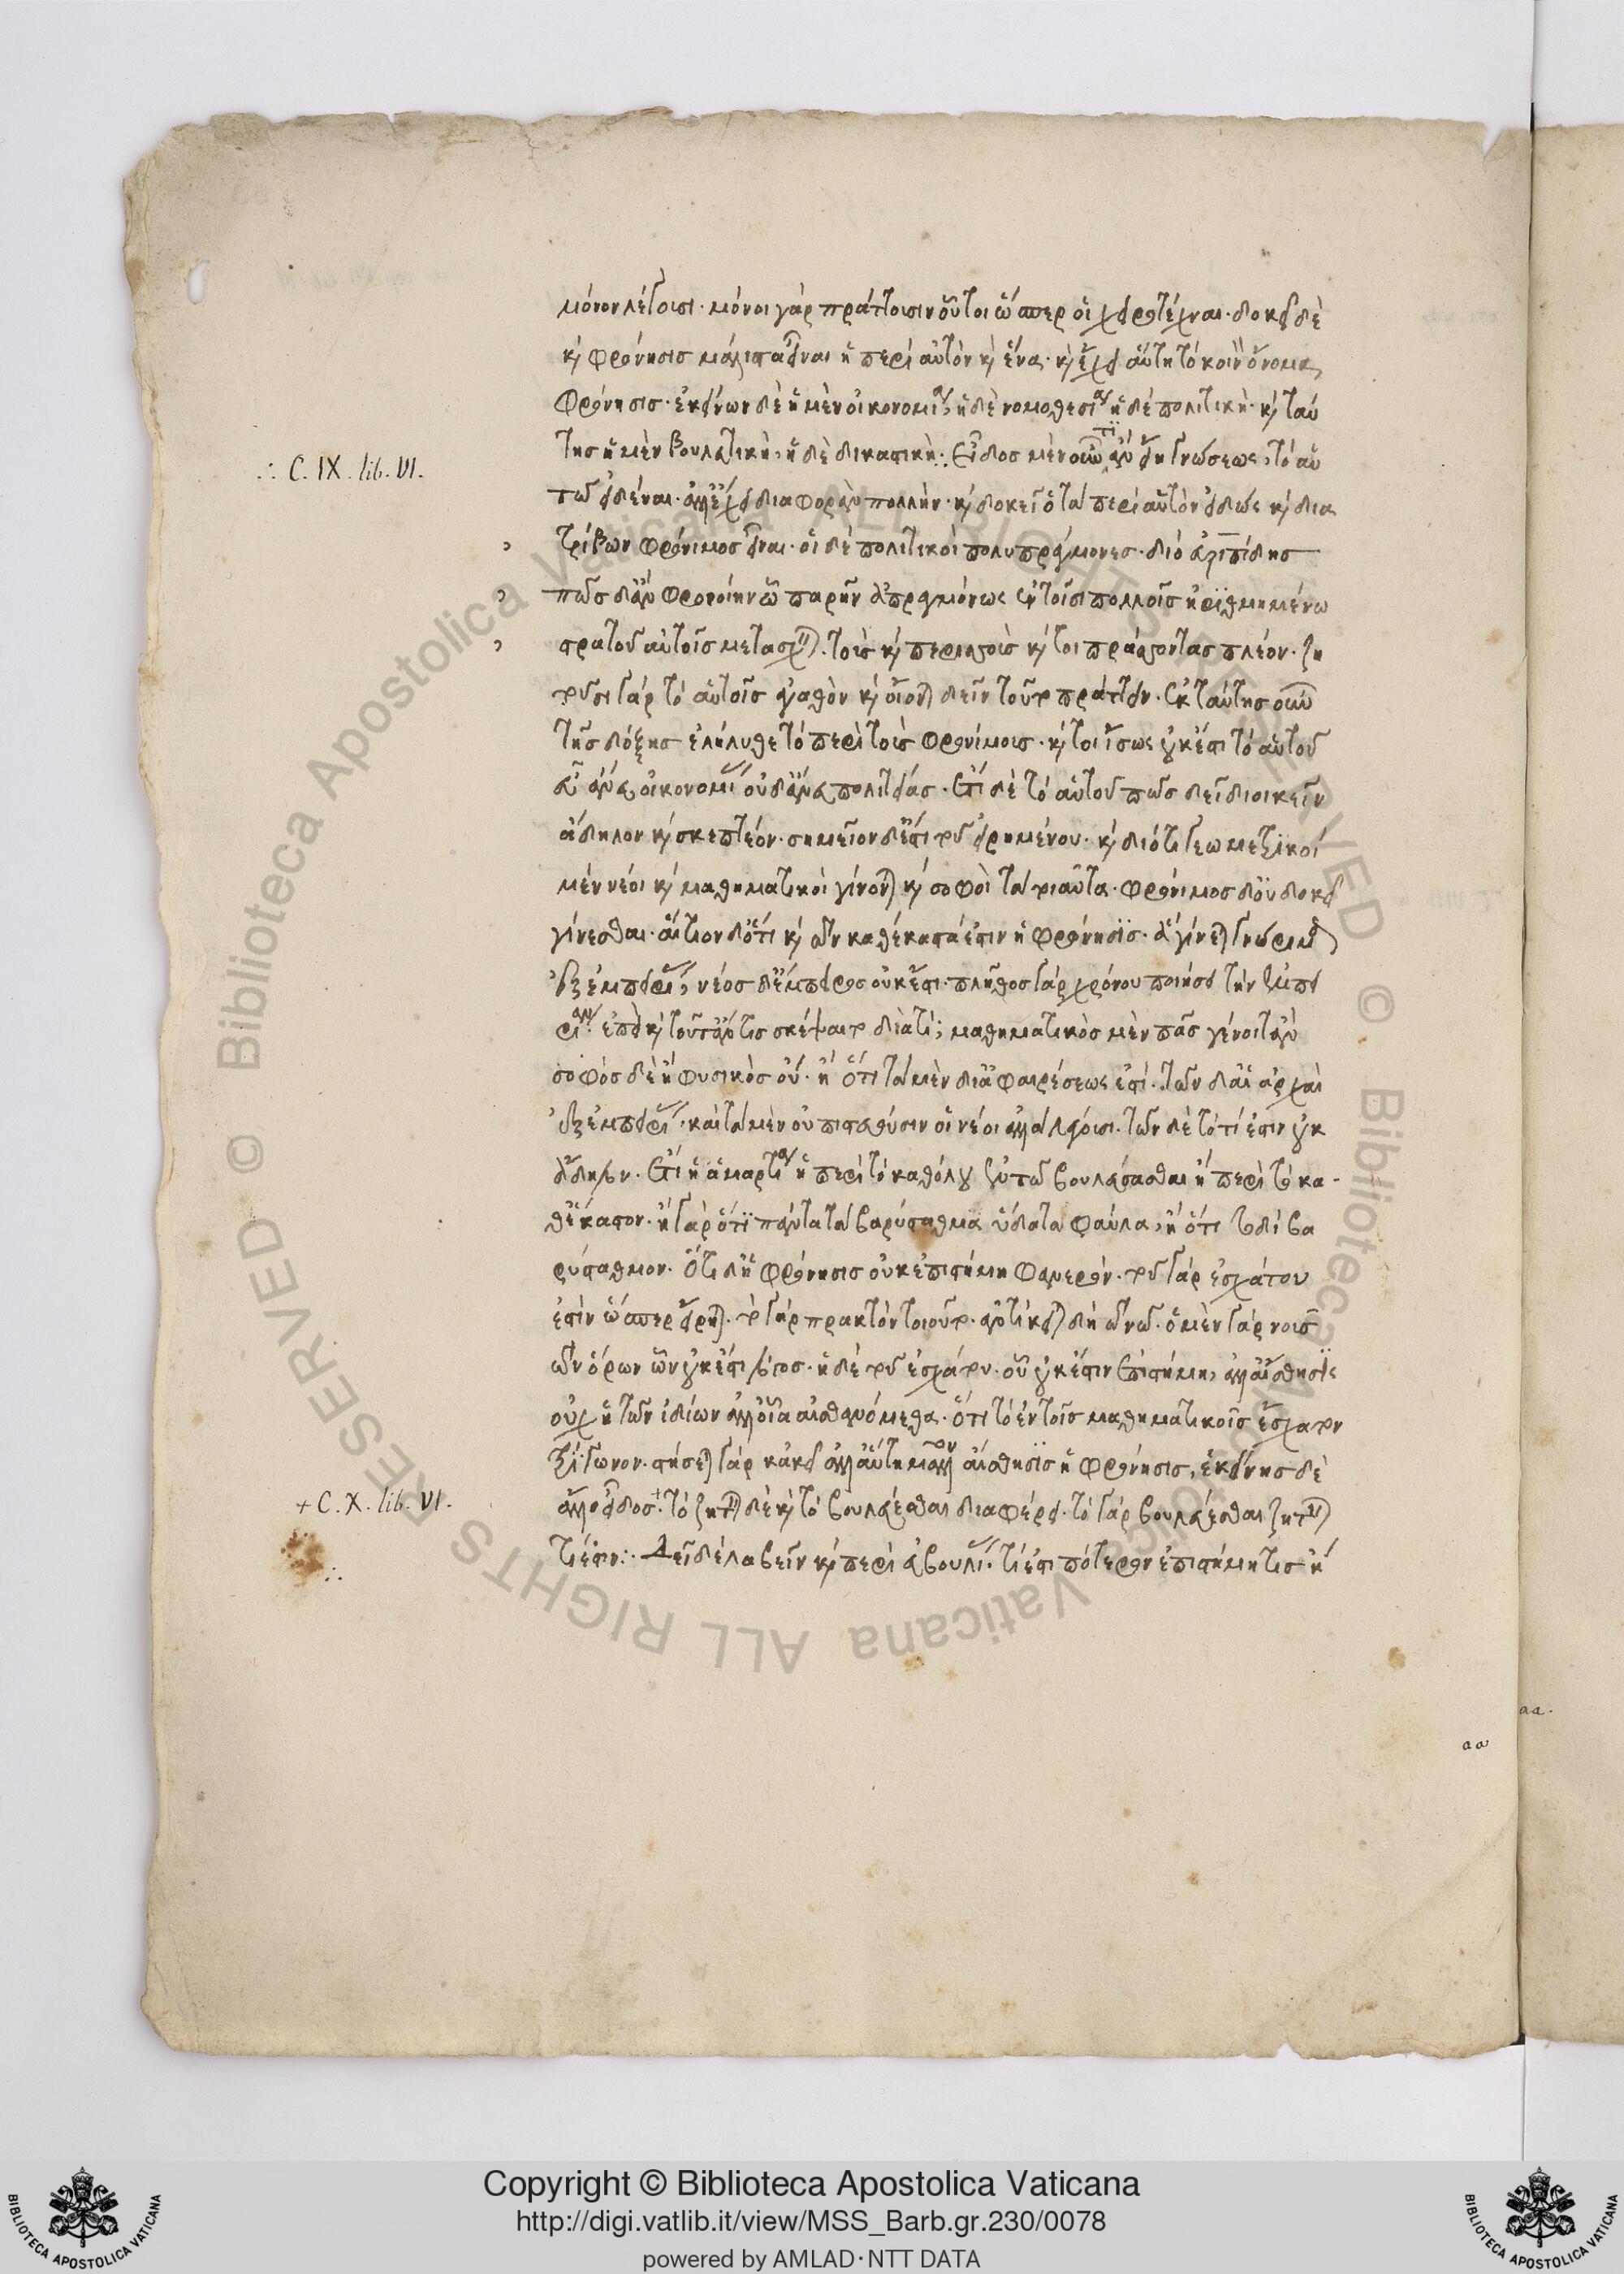 μόνον λέγουσι· μόνοι γὰρ πράττουσιν οὗτοι ὥσπερ οἱ χειροτέχναι· δοκεῖ δὲ
καὶ φρόνησις μάλιστα εἶναι ἡ περὶ αὐτὸν καὶ ἕνα· καὶ ἔχει αὕτη τὸ κοινὸν ὄνομα,
φρόνησις· ἐκείνων δὲ ἡ μὲν οἰκονομία, ἡ δὲ νομοθεσία, ἡ δὲ πολιτική· καὶ ταύ
της ἡ μὲν βουλευτική, ἡ δὲ δικαστική. Εἶδος μὲν οὖν τι ἂν εἴη γνώσεως, τὸ αὑ
∴ C. IX. lib. VI.
τῷ εἰδέναι· ἀλλ' ἔχει διαφορὰν πολλήν· καὶ δοκεῖ ὁ τὰ περὶ αὑτὸν εἰδὼς καὶ δια
τρίβων φρόνιμος εἶναι· οἱ δὲ πολιτικοὶ πολυπράγμονες· διὸ εὐριπίδης
πῶς δ' ἂν φρονοίην ᾧ παρῆν ἀπραγμόνως ἐν τοῖσι πολλοῖς ἠριθμημένῳ
στρατοῦ αὐτοῖς μετασχεῖν. τοὺς καὶ περισσοὺς καί τοι πράσσοντας πλέον· ζη
τοῦσι γὰρ τὸ αὑτοῖς ἀγαθὸν καὶ οἴονται δεῖν τοῦτο πράττειν. ἐκ ταύτης οὖν
τῆς δόξης ἐλήλυθε τὸ περὶ τοὺς φρονίμους· καί τοι ἴσως οὐκ ἔστι τὸ αὑτοῦ
εὖ ἄνευ οἰκονομίας οὐδ' ἄνευ πολιτείας. ἔτι δὲ τὸ αὑτοῦ πῶς δεῖ διοικεῖν
ἄδηλον καὶ σκεπτέον· σημεῖον δ' ἐστὶ τοῦ εἰρημένου· καὶ διότι γεωμετρικοὶ
μὲν νέοι καὶ μαθηματικοὶ γίνονται καὶ σοφοὶ τὰ τοιαῦτα· φρόνιμος δ' οὐ δοκεῖ
γίνεσθαι· αἴτιον δ' ὅτι καὶ τῶν καθέκαστά ἐστιν ἡ φρόνησις· ἃ γίνεται γνώριμα
ἐξ ἐμπειρίας, νέος δ' ἔμπειρος οὐκ ἔστι· πλῆθος γὰρ χρόνου ποιήσει τὴν ἐμπει
ρίαν· ἐπεὶ καὶ τοῦτ' ἄν τις σκέψαιτο διὰ τί; μαθηματικὸς μὲν πᾶς γένοιτ' ἂν
σοφὸς δὲ ἢ φυσικὸς οὔ. ἢ ὅτι τὰ μὲν δι' ἀφαιρέσεως ἐστί. τῶν δ' αἱ ἀρχαὶ
ἐξ ἐμπειρίας· καὶ τὰ μὲν οὐ πιστεύουσιν οἱ νέοι ἀλλὰ λέγουσι. τῶν δὲ τὸ τί ἐστιν οὐκ
ἄδηλον. ἔτι ἡ ἁμαρτία ἢ περὶ τὸ καθόλου ἐν τῷ βουλεύσασθαι ἢ περὶ τὸ κα-
θ' ἕκαστον. ἢ γὰρ ὅτι πάντα τὰ βαρύσταθμα ὕδατα φαῦλα, ἢ ὅτι τοδὶ βα
ρύσταθμον. Ὅτι δ' ἡ φρόνησις οὐκ ἐπιστήμη φανερόν· τοῦ γὰρ ἐσχάτου
ἐστὶν ὥσπερ εἴρηται. τὸ γὰρ πρακτὸν τοιοῦτο. ἀντίκειται δὴ τῷ νῷ. ὁ μὲν γὰρ νοῦς
τῶν ὅρων ὧν οὐκ ἔστι λόγος. ἡ δὲ τοῦ ἐσχάτου. οὗ οὐκ ἔστιν ἐπιστήμη, ἀλλ' αἴσθησις
οὐχ ἡ τῶν ἰδίων ἀλλ' οἵᾳ αἰσθανόμεθα. ὅτι τὸ ἐν τοῖς μαθηματικοῖς ἔσχατον
τρίγωνον. στήσεται γὰρ κἀκεῖ ἀλλ' αὕτη μᾶλλον αἴσθησις ἢ φρόνησις, ἐκείνης δὲ
ἄλλο εἶδος. + τὸ ζητεῖν δὲ καὶ τὸ βουλεύεσθαι διαφέρει. τὸ γὰρ βουλεύεσθαι ζητεῖν
+ C. X. lib. VI.
τί ἐστιν:· Δεῖ δὲ λαβεῖν καὶ περὶ εὐβουλίας τί ἐστι πότερον ἐπιστήμη τις ἢ
∴
aa
aa.
Copyright © Biblioteca Apostolica Vaticana
http://digi.vatlib.it/view/MSS_Barb.gr.230/0078
powered by AMLAD·NTT DATA
BIBLIOTECA APOSTOLICA VATICANA
BIBLIOTECA APOSTOLICA VATICANA
© Biblioteca Apostolica Vaticana ALL RIGHTS RESERVED © Biblioteca Apostolica Vaticana ALL RIGHTS RESERVED